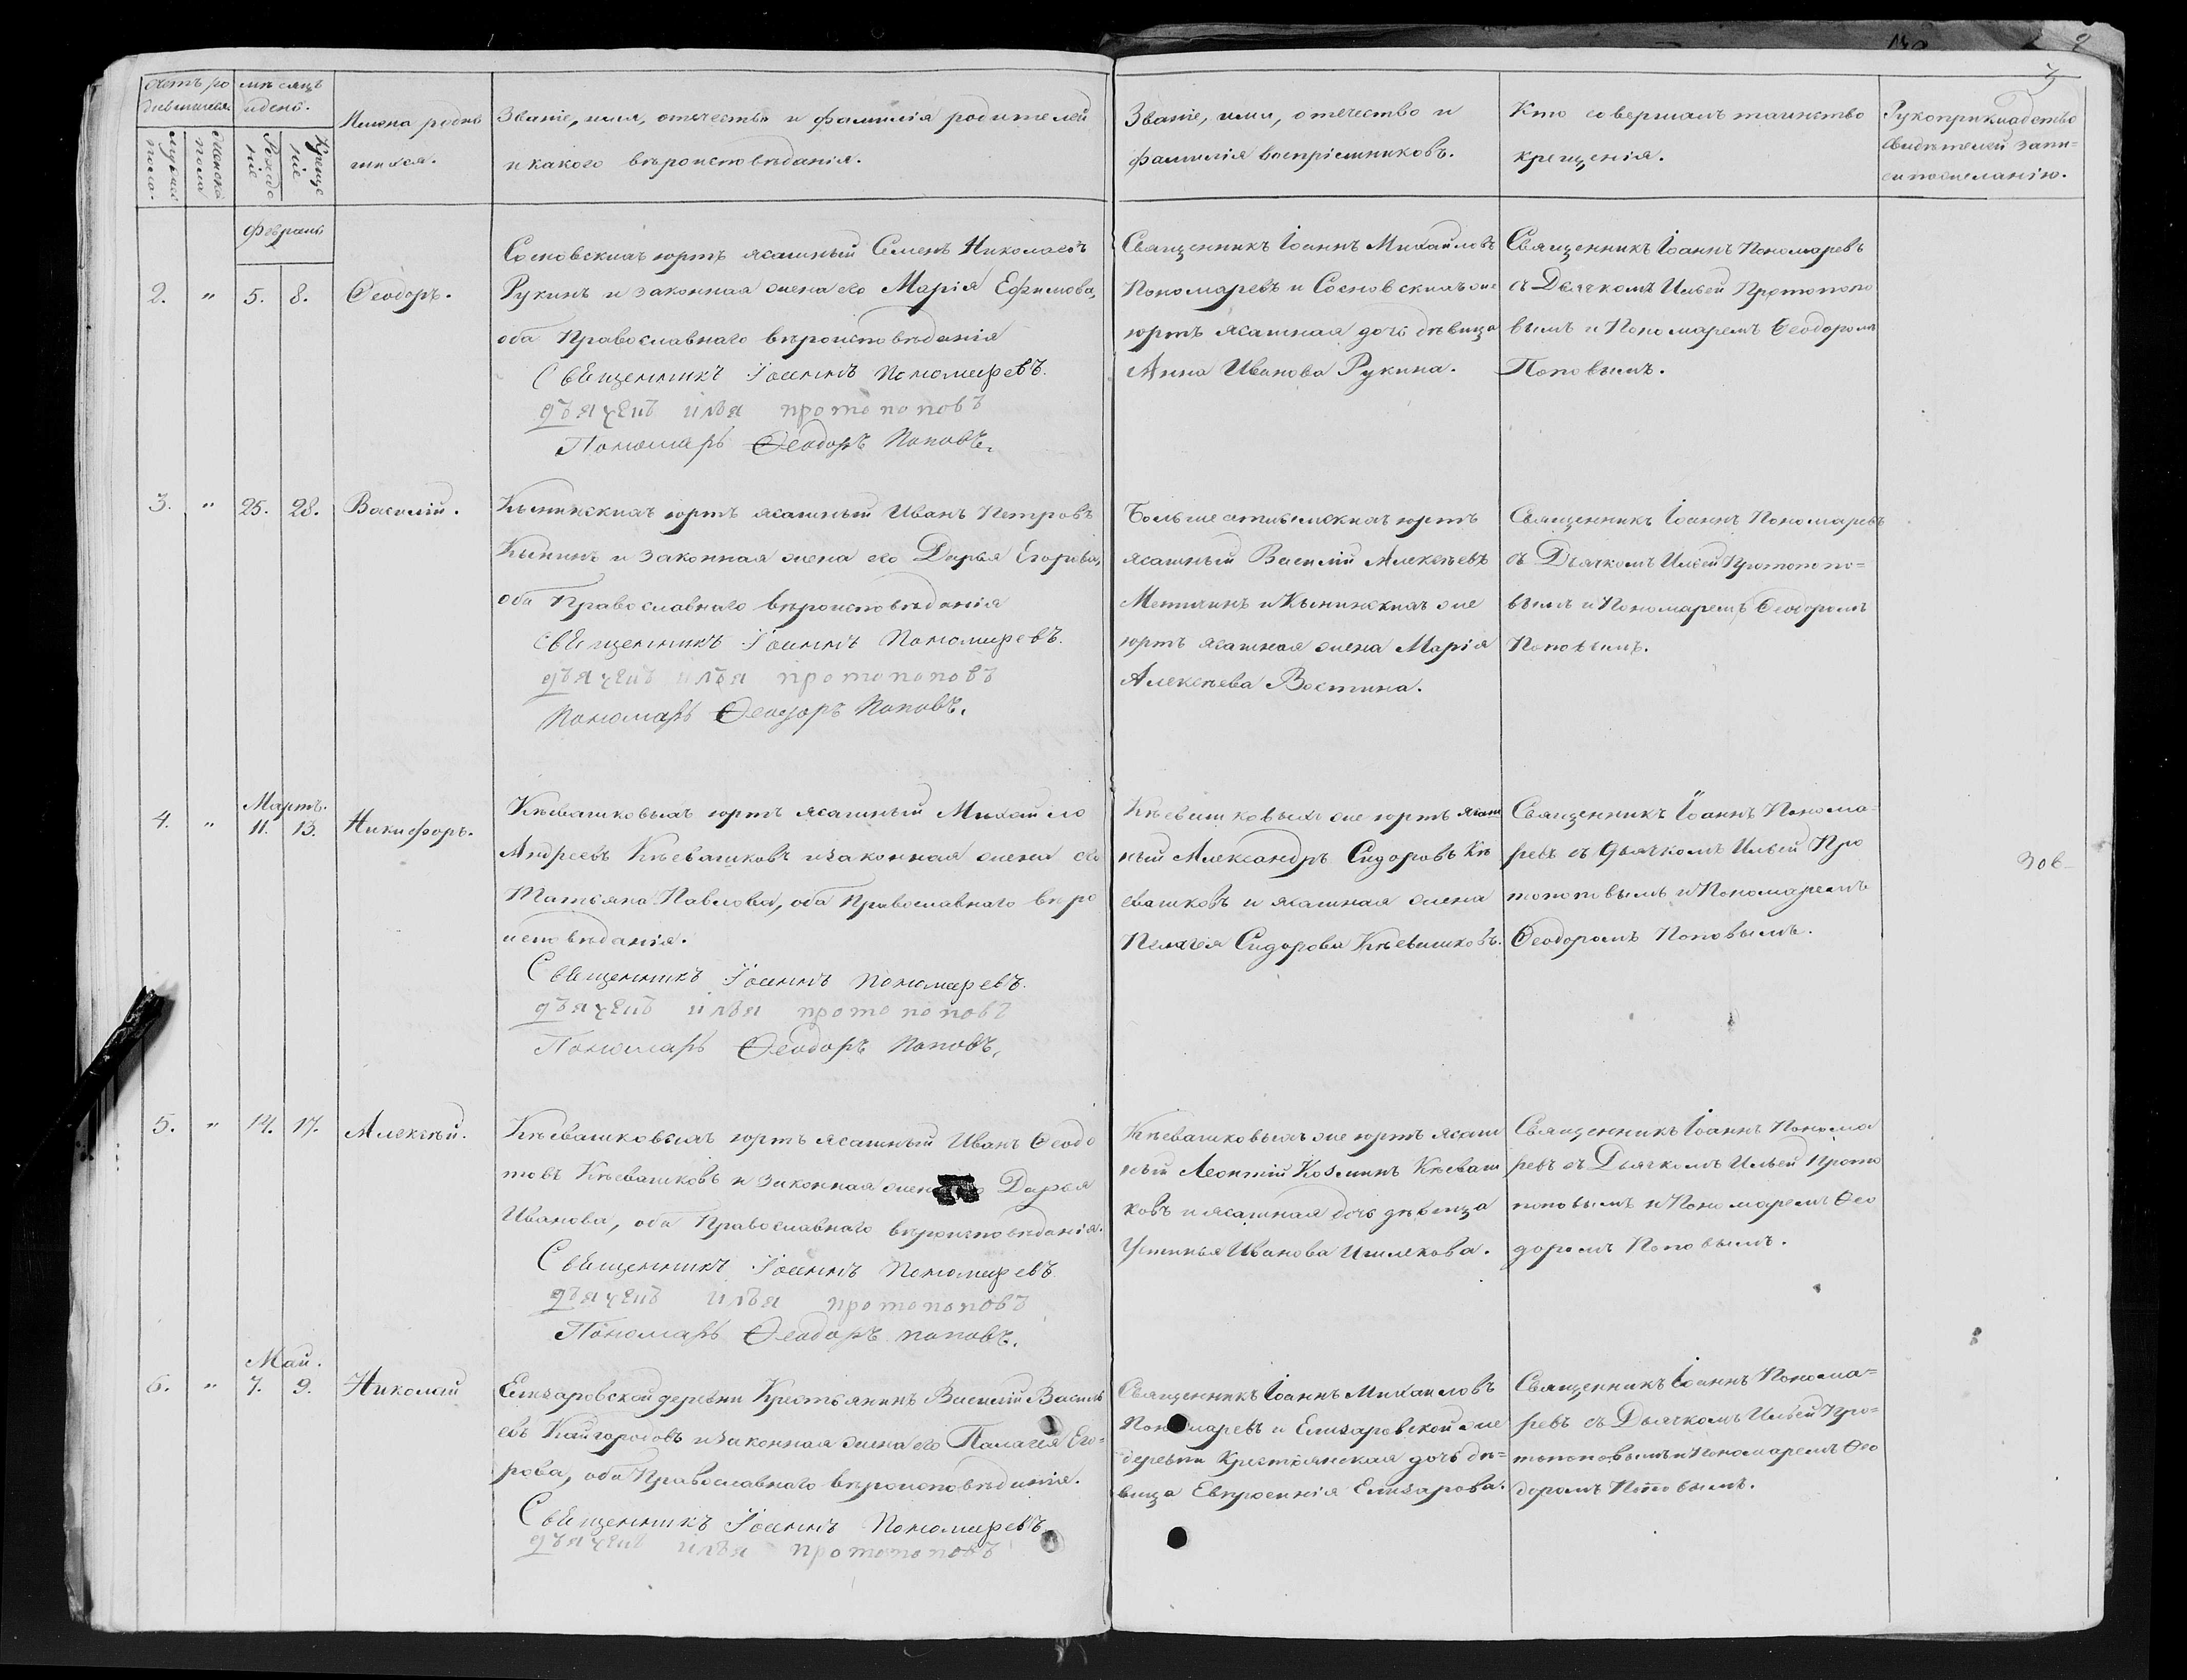 Счетъ ро
дившихся
мѣсяцъ
и день.
Мужска
пола.
Женска
пола
Рожде
ніе
Креще
ніе
Имена родив
шихся.
Званіе, имя, отчество и фамилія родителей
и какого вѣроисповѣданія.
Званіе, имя, отечество и
фамилія воспріемниковъ.
Кто совершалъ таинство
крещенія.
Рукоприкладство
свидѣтелей запи=
си по желанію.
3
Февраль
2. " 5. 8. Ѳеодоръ.
Сосновскихъ юртъ ясашный Семенъ Николаевъ
Рукинъ и законная жена его Марія Ефимова,
оба Православнаго вѣроисповѣданія
Священникъ Іоаннъ Пономаревъ.
дьячекъ илья протопоповъ
Пономарь Ѳеодоръ Поповъ.
Священникъ Іоаннъ Михайловъ
Пономаревъ и Сосновскихъ же
юртъ ясашная дочь дѣвица
Анна Иванова Рукина.
Священникъ Іоаннъ Пономаревъ
съ Дьячкомъ Ильей Протопопо
вымъ и Пономаремъ Ѳеодоромъ
Поповымъ.
3. " 25. 28. Василій.
юртъ ясашный Иванъ Петровъ
Кынинъ и законная жена его Дарья Егорова,
оба Православнаго вѣроисповѣданія
Священникъ Іоаннъ Пономаревъ.
дьячекъ илья протопоповъ
Пономарь Ѳеодоръ Поповъ.
юртъ
ясашный Василій Алексѣевъ
и Кынинскихъ же
юртъ ясашная жена Марія
Алексѣева Костина.
Священникъ Іоаннъ Пономаревъ
съ Дьячкомъ Ильей Протопопо=
вымъ и Пономаремъ Ѳеодоромъ
Поповымъ.
Мартъ.
4. " 11. 13. Никифоръ.
Кѣевашковыхъ юртъ ясашный Михайло
Андреевъ Кѣевашковъ и законная жена его
Татьяна Павлова, оба Православнаго вѣро
исповѣданія.
Священникъ Іоаннъ Пономаревъ.
дьячекъ илья протопоповъ
Пономарь Ѳеодоръ Поповъ.
Кѣевашковыхъ же юртъ ясаш
ный Александръ Сидоровъ Кѣ
евашковъ и ясашная жена
Пелагея Сидорова Кѣевашковъ.
Священникъ Іоаннъ Понома=
ревъ съ Дьячкомъ Ильей Про
топоповымъ и Пономаремъ
Ѳеодоромъ Поповымъ.
5. " 14. 17. Алексѣй.
Кѣевашковыхъ юртъ ясашный Иванъ Ѳеодо
товъ Кѣевашковъ и законная жена Дарья
Иванова, оба Православнаго вѣроисповѣданія.
Священникъ Іоаннъ Пономаревъ
дьячекъ илья протопоповъ
Пономарь Ѳеодоръ поповъ.
Кѣевашковыхъ же юртъ ясаш
ный Леонтій Козминъ Кѣеваш
ковъ и ясашная дочь дѣвица
Устинья Иванова
Священникъ Іоаннъ Понома
ревъ съ Дьячкомъ Ильей Прото
поповымъ и Пономаремъ Ѳео
доромъ Поповымъ.
Май.
6. " 7. 9. Николай
Елизаровской деревни Крестьянинъ Василій Василь
евъ Кайгородовъ и законная жена его Палагея Его=
рова, оба Православнаго вѣроисповѣданія.
Священникъ Іоаннъ Пономаревъ
дьячекъ илья протопоповъ
Священникъ Іоаннъ Михаиловъ
Пономаревъ и Елизаровской же
деревни Крестьянская дочь дѣ=
вица Евпросинія Елизарова.
Священникъ Іоаннъ Понома=
ревъ съ Дьячкомъ Ильей Про=
топоповымъ и Пономаремъ Ѳео
доромъ Поповымъ.